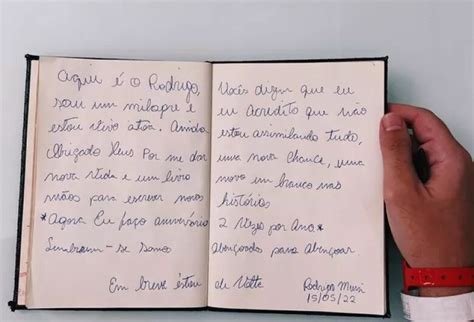 Aqui é o Rodrigo,
sou um milagre e
estou vivo atoa. Ainda
Obrigado Deus Por me dar
nova vida e um livro
mãos para escrever novos
*Agora Eu faço aniversário
Lembrem-se somos
Em breve estou
Vocês dizem que eu
eu acredito que não
estou assimilando tudo,
uma nova chance, uma
novo em branco nas
histórias
2 vezes por Ano*
Abençoados para Abençoar
de Volta
Rodrigo Mussi
15/05/22